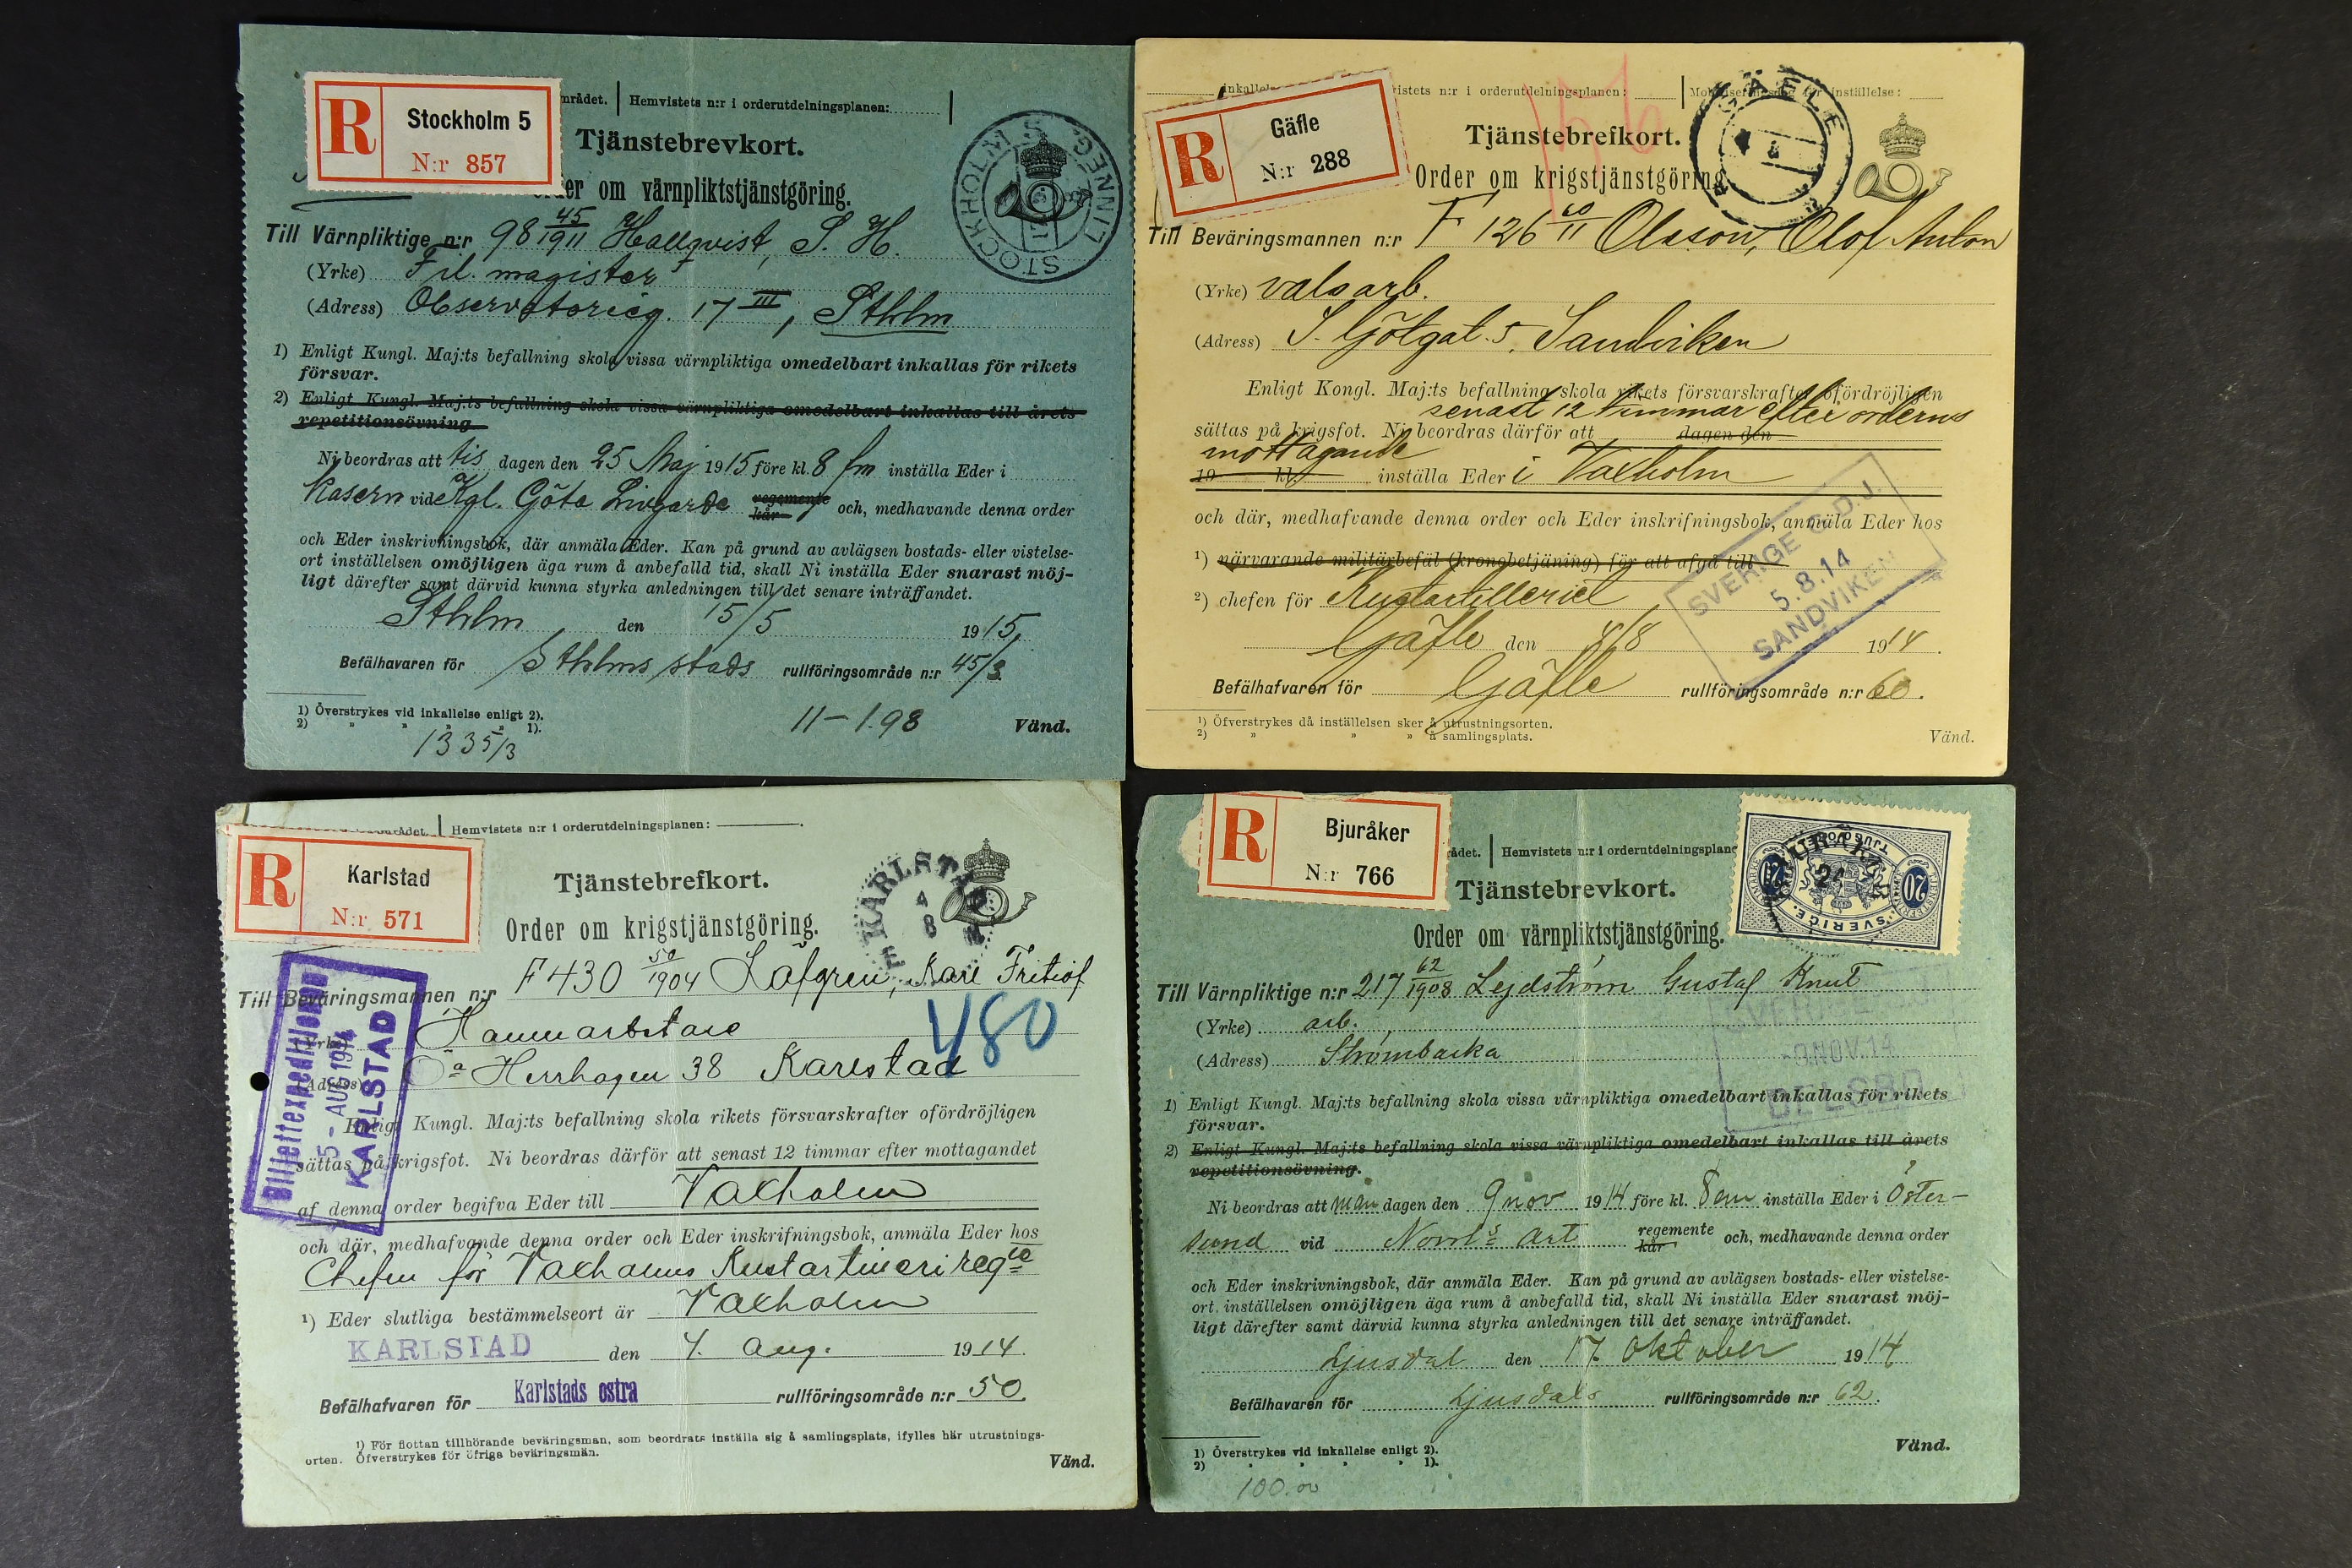 R
Stockholm 5
N:r 857
området. Hemvistets n:r i orderutdelningsplanen:
Tjänstebrevkort.
om värnpliktstjänstgöring.
STOCKHOLM 5
LINNEG.
Till Värnpliktige n:r 98 45/1911 Hallqvist, S. H.
(Yrke) Fil. magister
(Adress) Observatorieg. 17 III, Sthlm
1) Enligt Kungl. Maj:ts befallning skola vissa värnpliktiga omedelbart inkallas för rikets
försvar.
2) Enligt Kungl. Maj:ts befallning skola vissa värnpliktiga omedelbart inkallas till årets
repetitionsövning
Ni beordras att tis dagen den 25 Maj 1915 före kl. 8 fm inställa Eder i
Kasern vid Kgl. Göta Livgarde regemente kår och, medhavande denna order
och Eder inskrivningsbok, där anmäla Eder. Kan på grund av avlägsen bostads- eller vistelse-
ort inställelsen omöjligen äga rum å anbefalld tid, skall Ni inställa Eder snarast möj-
ligt därefter samt därvid kunna styrka anledningen till det senare inträffandet.
Sthlm den 15/5 1915
Befälhavaren för Sthlms stads rullföringsområde n:r 45/3
1) Överstrykes vid inkallelse enligt 2).
2) " " " " 1).
11-1.98
Vänd.
1335/3
R
Gäfle
N:r 288
n:r i orderutdelningsplanen: inställelse:
Tjänstebrefkort.
Order om krigstjänstgöring
GÄFLE
Till Beväringsmannen n:r F 126 60/11 Olsson, Olof Anton
(Yrke) valsarb.
(Adress) S. Götgat. 5, Sandviken
Enligt Kongl. Maj:ts befallning skola rikets försvarskrafter ofördröjligen
senast 12 timmar efter orderns
sättas på krigsfot. Ni beordras därför att dagen den
mottagande
19 kl. inställa Eder i Vaxholm
och där, medhafvande denna order och Eder inskrifningsbok, anmäla Eder hos
1) närvarande militärbefäl (kronobetjäning) för att afgå till
2) chefen för Kustartilleriet
SVERIGE G.D.J.
5.8.14
SANDVIKEN
Gäfle den 4/8 1914.
Befälhafvaren för Gäfle rullföringsområde n:r 60.
1) Öfverstrykes då inställelsen sker å utrustningsorten.
2) " " " å samlingsplats.
Vänd.
R
Karlstad
N:r 571
Hemvistets n:r i orderutdelningsplanen:
Tjänstebrefkort.
Order om krigstjänstgöring.
KARLSTAD
4
8
Till Beväringsmannen n:r F 430 50/1904 Löfgren, Karl Fritiof
Hamnarbetare
480
(Adress) Herrhagen 38 Karlstad
Biljettexpeditionen
5 - AUG 1914
KARLSTAD
Enligt Kungl. Maj:ts befallning skola rikets försvarskrafter ofördröjligen
sättas på krigsfot. Ni beordras därför att senast 12 timmar efter mottagandet
af denna order begifva Eder till Vaxholm
och där, medhafvande denna order och Eder inskrifningsbok, anmäla Eder hos
Chefen för Vaxholms Kustartilleriregte
1) Eder slutliga bestämmelseort är Vaxholm
KARLSTAD den 4. Aug. 1914.
Befälhafvaren för Karlstads östra rullföringsområde n:r 50
1) För flottan tillhörande beväringsman, som beordrats inställa sig å samlingsplats, ifylles här utrustnings-
orten. Öfverstrykes för öfriga beväringsmän.
Vänd.
R
Bjuråker
N:r 766
Hemvistets n:r i orderutdelningsplane
Tjänstebrevkort.
Order om värnpliktstjänstgöring.
SVERIGE
20
20
BJURÅKER
Till Värnpliktige n:r 217 62/1908 Lejdström Gustaf Knut
(Yrke) arb.
(Adress) Strömbacka
-9.NOV.14
DELSBO
1) Enligt Kungl. Maj:ts befallning skola vissa värnpliktiga omedelbart inkallas för rikets
försvar.
2) Enligt Kungl. Maj:ts befallning skola vissa värnpliktiga omedelbart inkallas till årets
repetitionsövning.
Ni beordras att mån dagen den 9 nov 1914 före kl. 8 em inställa Eder i Öster-
sund vid Norrl:s Art regemente kår och, medhavande denna order
och Eder inskrivningsbok, där anmäla Eder. Kan på grund av avlägsen bostads- eller vistelse-
ort inställelsen omöjligen äga rum å anbefalld tid, skall Ni inställa Eder snarast möj-
ligt därefter samt därvid kunna styrka anledningen till det senare inträffandet.
Ljusdal den 17 Oktober 1914
Befälhavaren för Ljusdals rullföringsområde n:r 62.
1) Överstrykes vid inkallelse enligt 2).
2) " " " " 1).
Vänd.
100.00